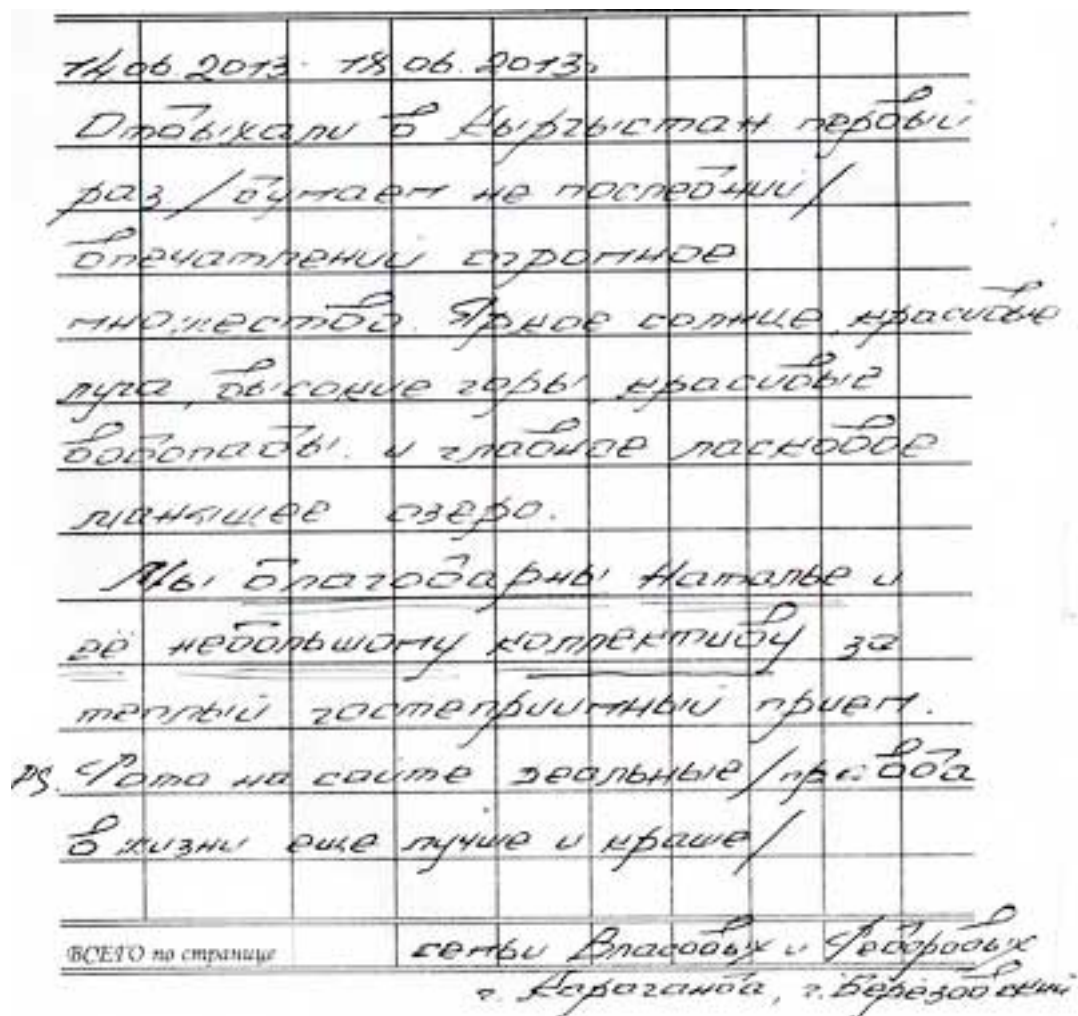 14.06.2013 - 18.06.2013г
Отдыхали в Кыргызстан первый
раз /думаем не последний/
впечатлений огромное
множество. Яркое солнце, красивые
луга, высокие горы, красивые
водопады. и главное ласковое
манящее озеро.
Мы благодарны Наталье и
её небольшому коллективу за
теплый гостеприимный прием.
PS. Фото на сайте реальные /правда
в жизни еще лучше и краше/
ВСЕГО по странице
семьи Власовых и Федоровых
г. Караганда, г. Берёзовский